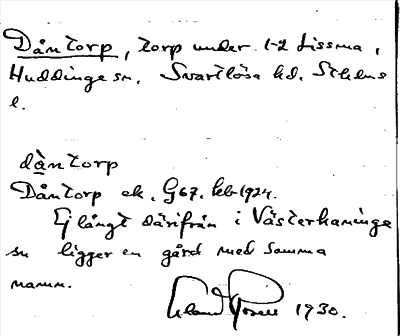 Dåntorp, torp under 1-2 Lissma,
Huddinge sn. Svartlösa hd. Sthlms
l.
dàntorp
Dåntorp ek. G67. leb 1924.
Ej långt därifrån i Västerhaninge
sn ligger en gård med samma
namn.
1930.